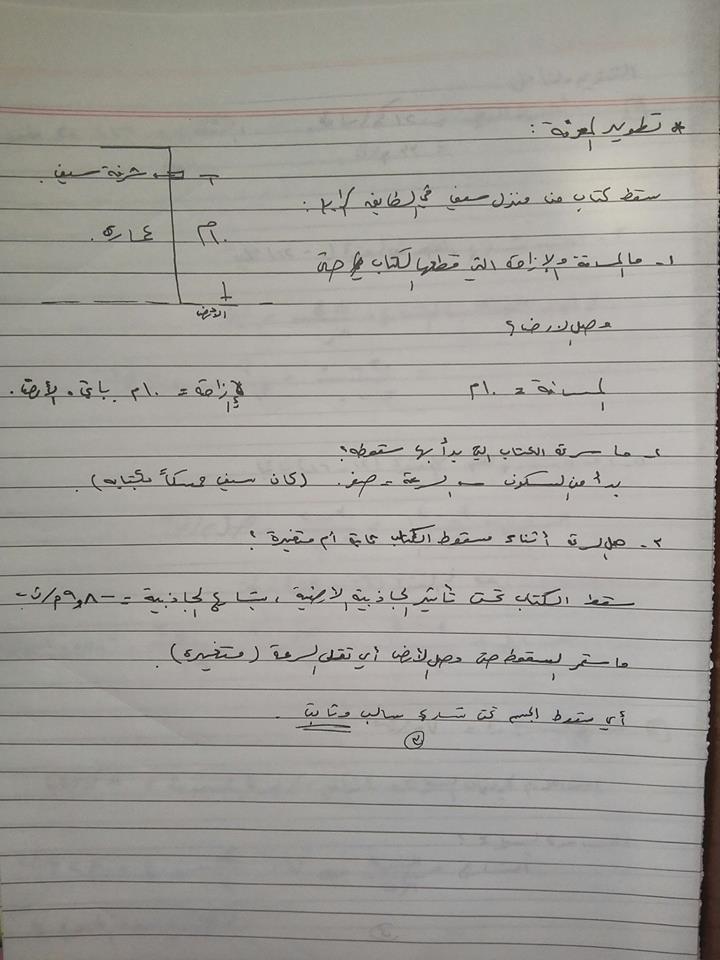 * تطوير المعرفة :
شرفة سيف
سقط كتاب من منزل سيف في الطابق :
١٠م
عمارة
١- ما المسافة والإزاحة التي قطعها الكتاب حتى
الأرض
وصل لأرض؟
المسافة = ١٠م
الإزاحة = ١٠م باتجاه الأرض.
٢- ما سرعة الكتاب التي بدأ بها سقوطه؟
بدأ من السكون ← السرعة = صفر. (كان سيف ممسكاً بكتابه).
٣- هل السرعة أثناء سقوط الكتاب ثابتة أم متغيرة؟
سقط الكتاب تحت تأثير الجاذبية الأرضية، تسارع الجاذبية = -٩,٨م/ث٢
فاستمر السقوط حتى وصل الأرض أي تقل السرعة (متغيرة).
أي سقوط الجسم تحت تسارع سالب وثابت.
٣